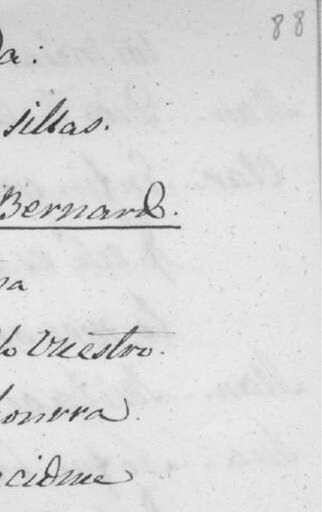 88
da:
sillas.
Bernard.
na
lo vuestro.
honrra
cidme